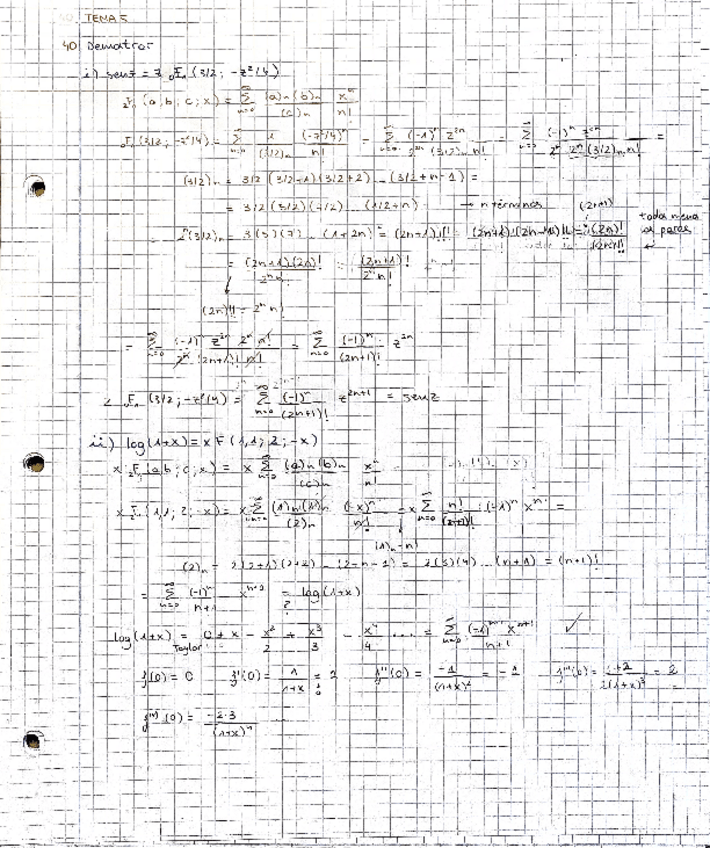 TEMA 5
40 Demostrar
i) sen z = z ₀F₁ (3/2; -z²/4)
₂F₁ (a, b; c; x) = ∑_{n=0}^∞ (a)_n (b)_n / (c)_n x^n / n!
₀F₁ (3/2, -z²/4) = ∑_{n=0}^∞ 1/(3/2)_n (-z²/4)^n / n! = ∑_{n=0}^∞ (-1)^n z^{2n} / 2^{2n} (3/2)_n n! = ∑_{n=0}^∞ (-1)^n z^{2n} / 2^n 2^n (3/2)_n n! =
(3/2)_n = 3/2 (3/2+1) (3/2+2) ... (3/2+n-1) =
= 3/2 (5/2) (7/2) ... (1/2+n) → n términos
2^n (3/2)_n = 3(5)(7) ... (1+2n) = (2n+1)!!
= (2n+1)(2n)! / 2^n n! = (2n+1)! / 2^n n!
(2n)!! = 2^n n!
= ∑_{n=0}^∞ (-1)^n z^{2n} 2^n n! / 2^n (2n+1)! n! = ∑_{n=0}^∞ (-1)^n / (2n+1)! z^{2n}
z ₀F₁ (3/2; -z²/4) = ∑_{n=0}^∞ (-1)^n / (2n+1)! z^{2n+1} = sen z
ii) log(1+x) = x F (1,1; 2; -x)
x ₂F₁ (a, b; c; x) = x ∑_{n=0}^∞ (a)_n (b)_n / (c)_n x^n / n!
x ₂F₁ (1,1; 2; -x) = x ∑_{n=0}^∞ (1)_n (1)_n / (2)_n (-x)^n / n! = x ∑_{n=0}^∞ n! / (n+1)! (-1)^n x^n =
(1)_n = n!
(2)_n = 2(2+1)(2+2) ... (2+n-1) = 2(3)(4) ... (n+1) = (n+1)!
= ∑_{n=0}^∞ (-1)^n / n+1 x^{n+1} = log(1+x)
?
log(1+x) = 0 + x - x²/2 + x³/3 - x⁴/4 ... = ∑_{n=0}^∞ (-1)^n x^{n+1} / n+1 ✓
Taylor
f(0) = 0 f'(0) = 1/1+x = 1 f''(0) = -1/(1+x)² = -1 f'''(0) = = 2
f^{IV}(0) = -2·3 / (1+x)⁴